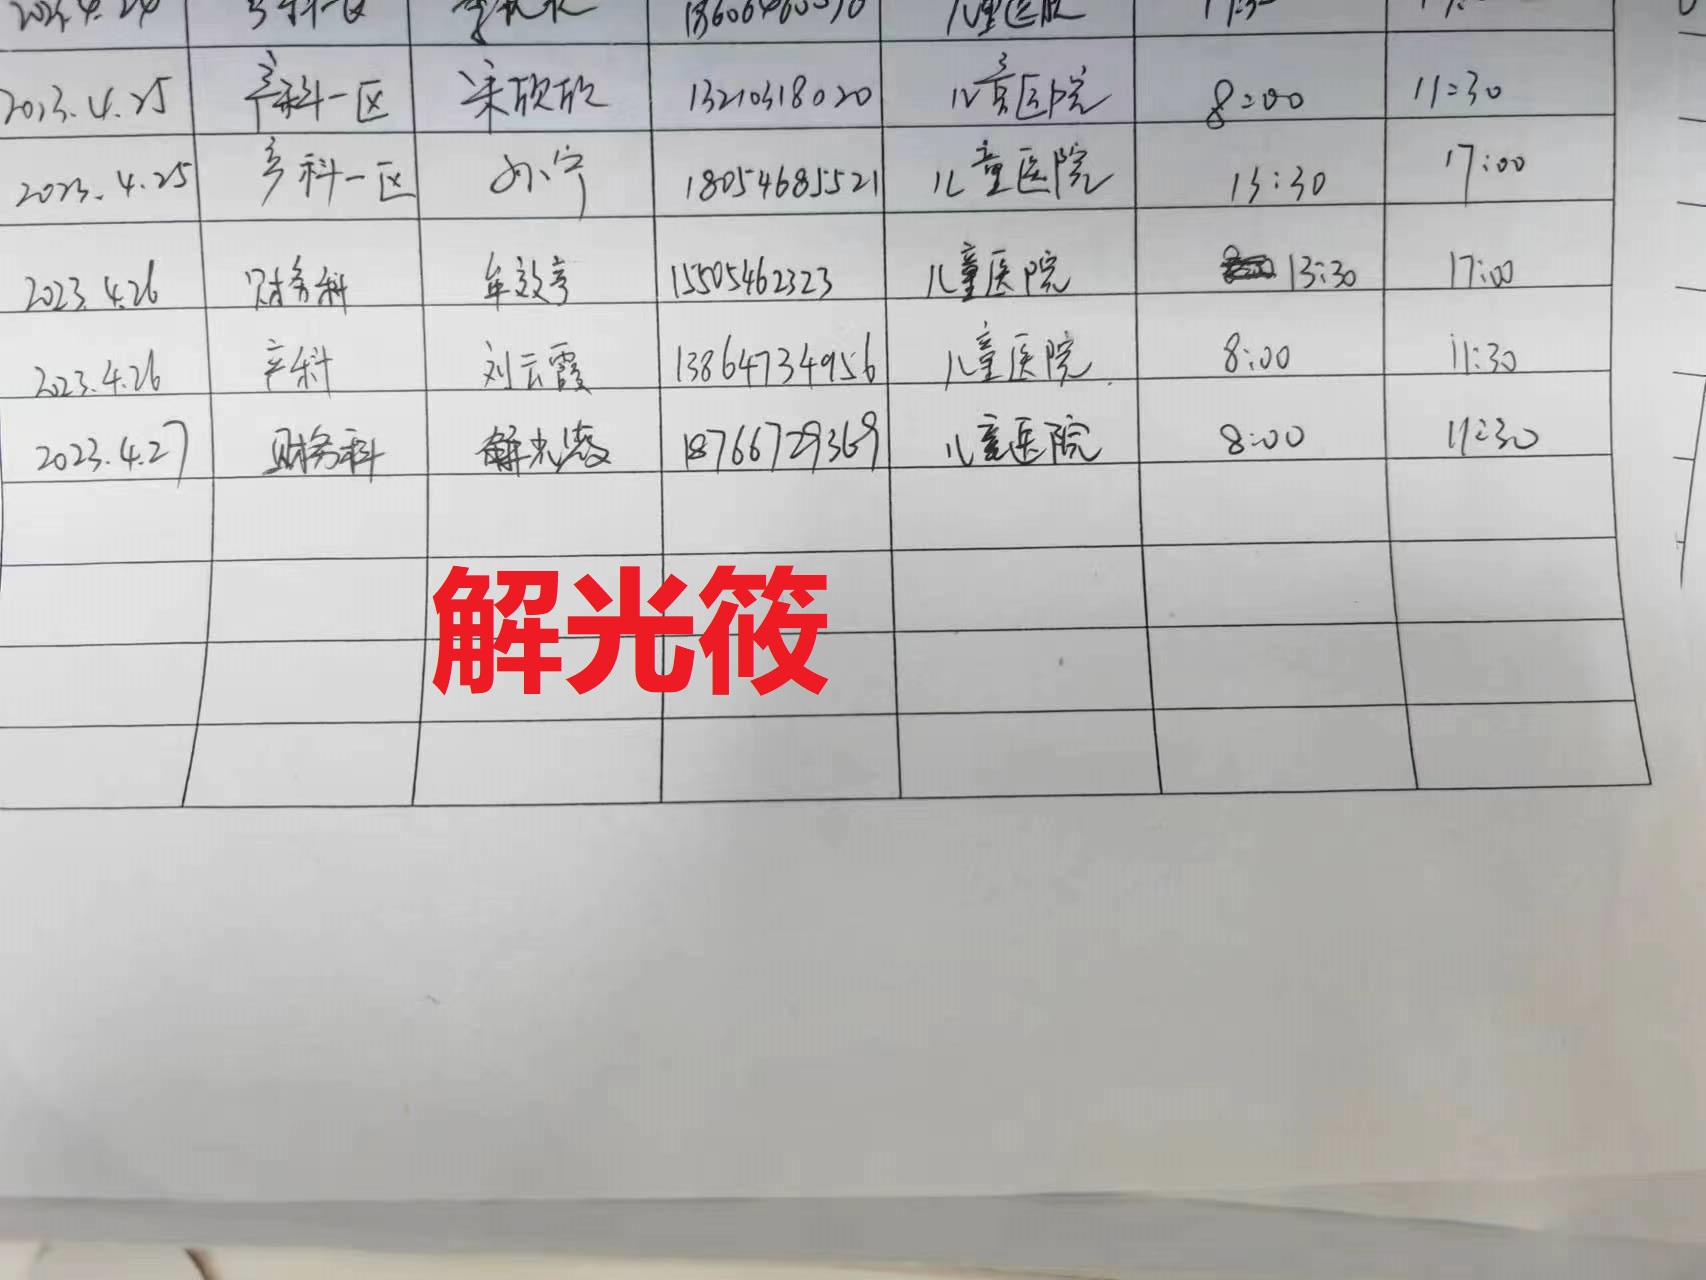 2023.4.25 产科一区 宋欣欣 13210318020 儿童医院 8:00 11:30
2023.4.25 产科一区 孙宁 18054685521 儿童医院 13:30 17:00
2023.4.26 财务科 牟效亭 15505462323 儿童医院 13:30 17:00
2023.4.26 产科 刘云霞 13864734956 儿童医院 8:00 11:30
2023.4.27 财务科 解光筱 18766729369 儿童医院 8:00 11:30
解光筱